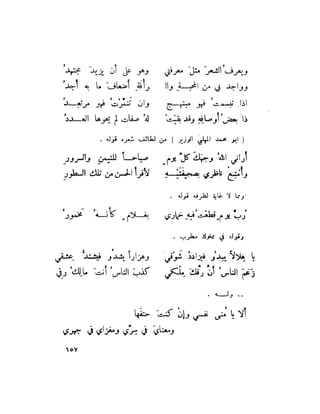 ويعرفُ الشعرَ مثلَ معرفتي وهو على أن يزيدَ مجتهدُ
وواجد بي من المحبـــةِ والرأفةِ أضعافَ ما به أجدُ
اذا تبسمتُ فهو مبتهـــج وان تنمَّرْتُ فهو مرتعـــدُ
ذا بعضُ أوصافِهِ وقد بقيتْ لهُ صفات لم يحوِها العـــددُ
( ابو محمد المهلبي الوزير ) من لطائف شعره قوله .
أراني اللهُ وجهَكَ كلَّ يومٍ صباحـــاً للتيمنِ والسرورِ
وأمتِعُ ناظري بصحيفتَيْـــهِ لأقرأ الحسنَ من تلك السطورِ
ومما لا غاية لظرفه قوله .
رُبَّ يومٍ قطعتُ فيهِ خماري بغـــلامٍ كأنـــهُ مخمورُ
وقوله في مملوك مطرب .
يا هلالاً يبدوُ فيزدادُ شَوْقي وهزاراً يشدوُ فيشتدُّ عشقي
زعمَ الناسُ أنَّ رِقَّكَ مِلْكي كذبَ الناسُ أنتَ مالِكُ رِقي
ولـــه .
ألا يا مُنى نفسي وإنْ كنتَ حتفَها
ومعنايَ في سِرّي ومغزاي في جهري
١٥٧